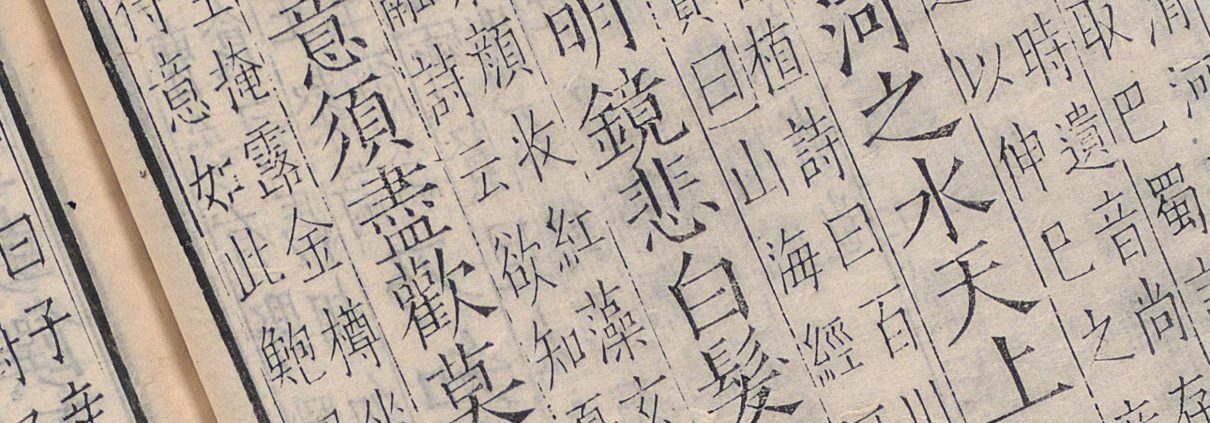 河
取巴蜀
時遺音尚存
以伸巳之
河之水天上
植詩曰百川
曰山海經
明鏡悲白髮
顏收紅藻玄
詩云欲知
意須盡歡莫
掩露金樽
意如此鮑
子
曰